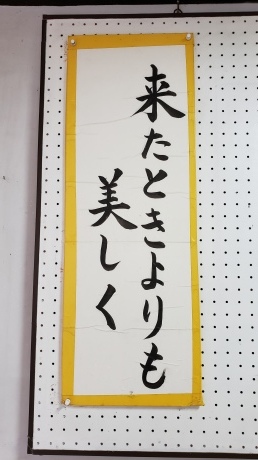 来たときよりも
美しく